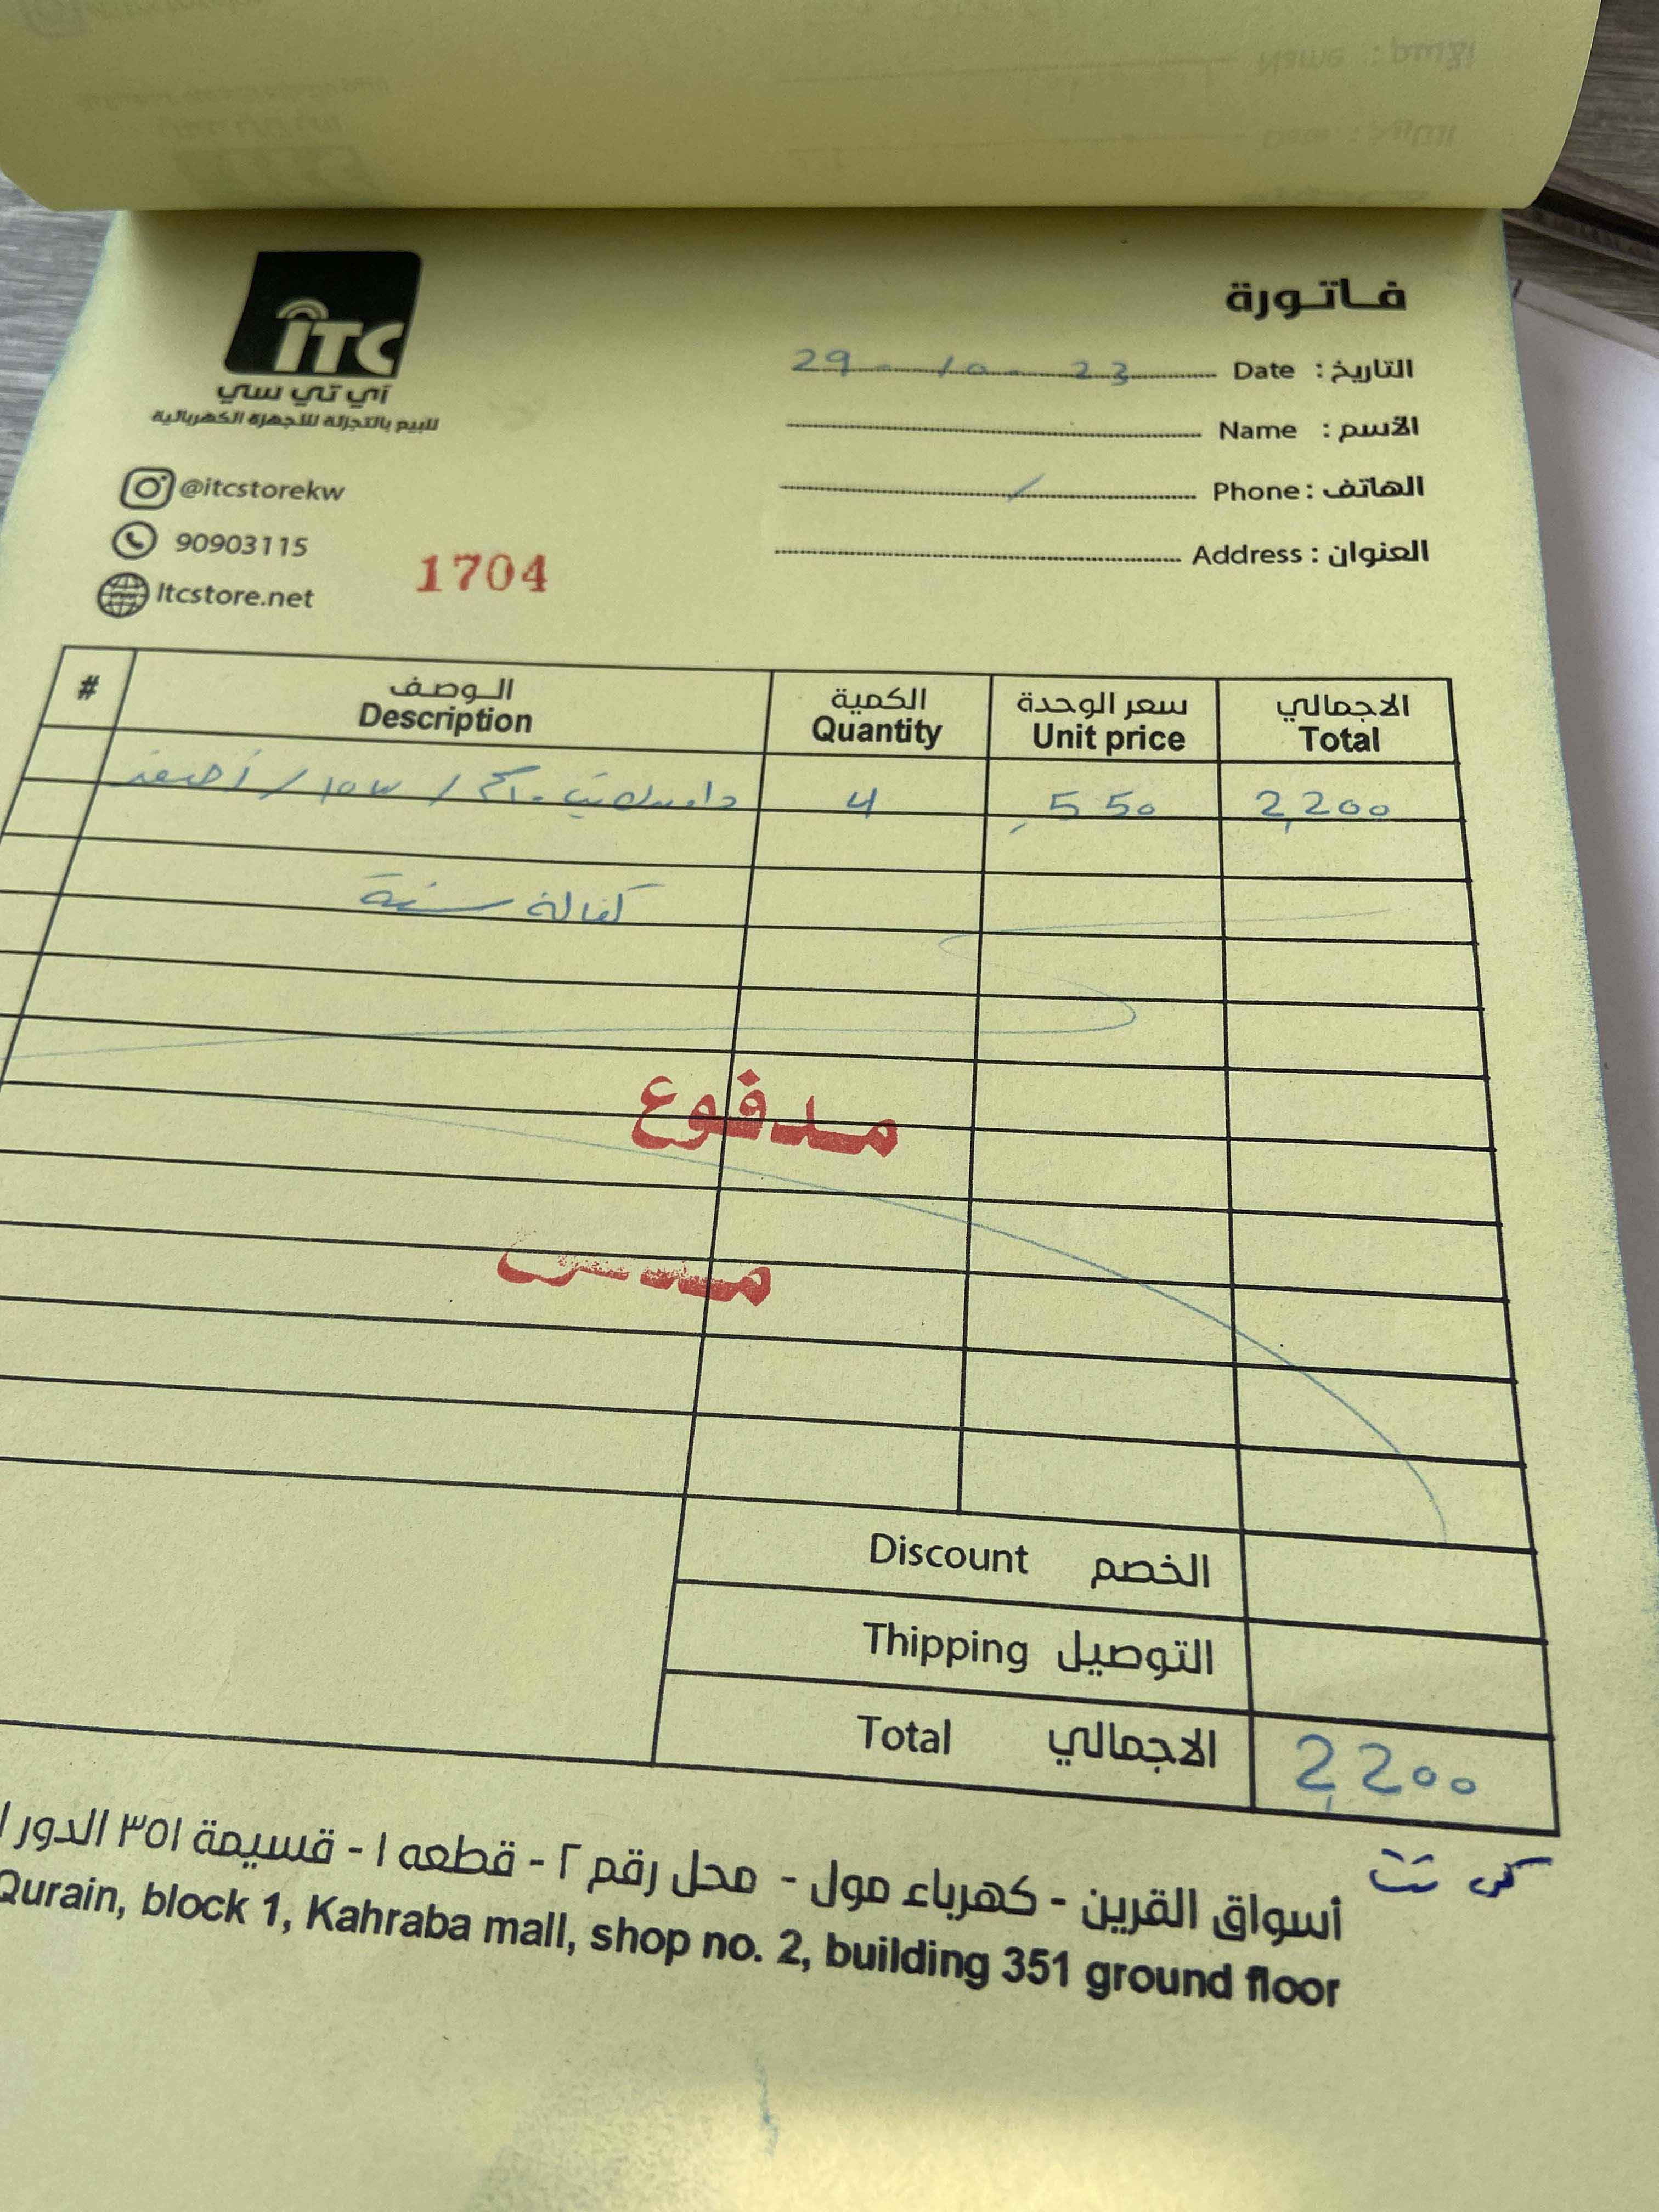 ITC
آي تي سي
للبيع بالتجزئة للأجهزة الكهربائية
@itcstorekw
90903115
Itcstore.net
1704
فاتورة
التاريخ : Date 29-10-23
الأسم : Name
الهاتف : Phone
العنوان : Address
# الوصف الكمية سعر الوحدة الاجمالي
Description Quantity Unit price Total
داونلايت 10سم / 15W / أصفر 4 ,550 2,200
كفالة سنة
مدفوع
Discount الخصم
Thipping التوصيل
Total الاجمالي 2,200
كي نت
أسواق القرين - كهرباء مول - محل رقم ٢ - قطعه ١ - قسيمة ٣٥١ الدور
Qurain, block 1, Kahraba mall, shop no. 2, building 351 ground floor